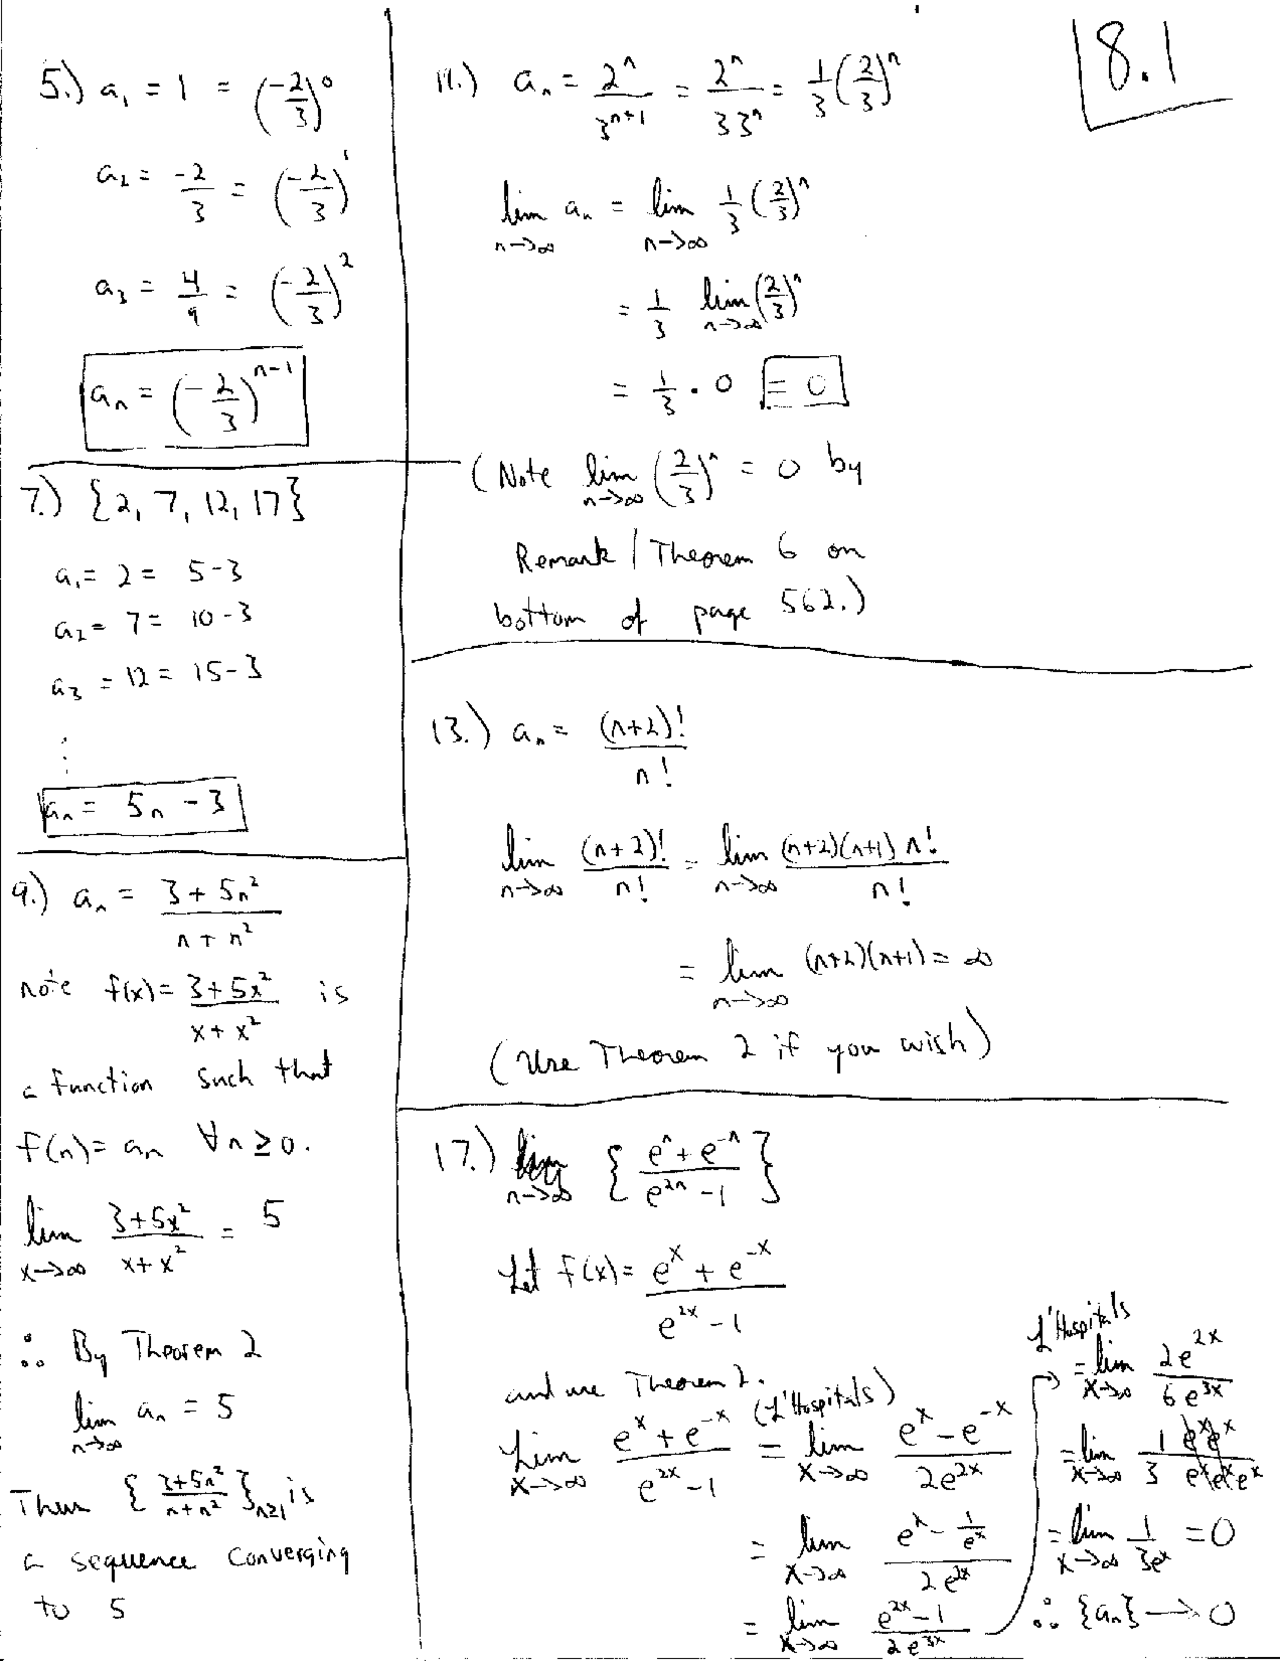 8.1
5.) a₁ = 1 = (-2/3)⁰
a₂ = -2/3 = (-2/3)¹
a₃ = 4/9 = (-2/3)²
aₙ = (-2/3)ⁿ⁻¹
7.) {2, 7, 12, 17}
a₁ = 2 = 5-3
a₂ = 7 = 10-3
a₃ = 12 = 15-3
⋮
aₙ = 5n - 3
9.) aₙ = (3 + 5n²)/(n + n²)
note f(x) = (3 + 5x²)/(x + x²) is
a function such that
f(n) = aₙ ∀n ≥ 0.
lim x→∞ (3+5x²)/(x+x²) = 5
∴ By Theorem 2
lim n→∞ aₙ = 5
Thus {(3+5n²)/(n+n²)}n≥1 is
a sequence converging
to 5
11.) aₙ = 2ⁿ/3ⁿ⁺¹ = 2ⁿ/(3 3ⁿ) = 1/3 (2/3)ⁿ
lim n→∞ aₙ = lim n→∞ 1/3 (2/3)ⁿ
= 1/3 lim n→∞ (2/3)ⁿ
= 1/3 · 0 = 0
(Note lim n→∞ (2/3)ⁿ = 0 by
Remark / Theorem 6 on
bottom of page 562.)
13.) aₙ = (n+2)!/n!
lim n→∞ (n+2)!/n! = lim n→∞ (n+2)(n+1) n!/n!
= lim n→∞ (n+2)(n+1) = ∞
(Use Theorem 2 if you wish)
17.) lim n→∞ {(eⁿ + e⁻ⁿ)/(e²ⁿ - 1)}
Let f(x) = (eˣ + e⁻ˣ)/(e²ˣ - 1)
and use Theorem 2.
lim x→∞ (eˣ + e⁻ˣ)/(e²ˣ - 1) = (L'Hospitals) lim x→∞ (eˣ - e⁻ˣ)/(2e²ˣ)
= lim x→∞ (eˣ - 1/eˣ)/(2e²ˣ)
= lim x→∞ (e²ˣ - 1)/(2e³ˣ)
L'Hospitals
→ = lim x→∞ 2e²ˣ/(6e³ˣ)
= lim x→∞ 1 eˣeˣ/(3 eˣeˣeˣ)
= lim x→∞ 1/(3eˣ) = 0
∴ {aₙ} → 0